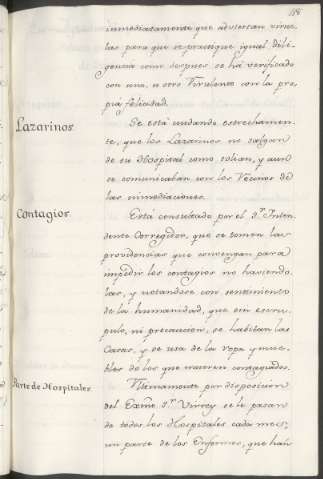 118
inmediatamente que adviertan virue-
las para que se practique igual dili-
gencia como despues se há verificado
con uno, u otro Virulento con la pro-
pia felicidad.
Lazarinos.
Se está cuidando estrechamen-
te, que los Lazarinos no salgan
de su Hospital como solian, y aun
se comunicaban con los Vecinos de
las inmediaciones.
Contagios.
Está consultado por el Sr. Inten-
dente Corregidor, que se tomen las
providencias que convengan para
impedir los contagios no haviendo-
las, y notandose con sentimiento
de la humanidad, que sin escru-
pulo, ni precaucion, se habitan las
Casas, y se usa de la ropa y mue-
bles de los que mueren contagiados.
Parte de Hospitales
Ultimamente por disposicion
del Exmo. Sr. Virrey se le pasan
de todos los Hospitales cada mes,
un parte de los Enfermos, que hai